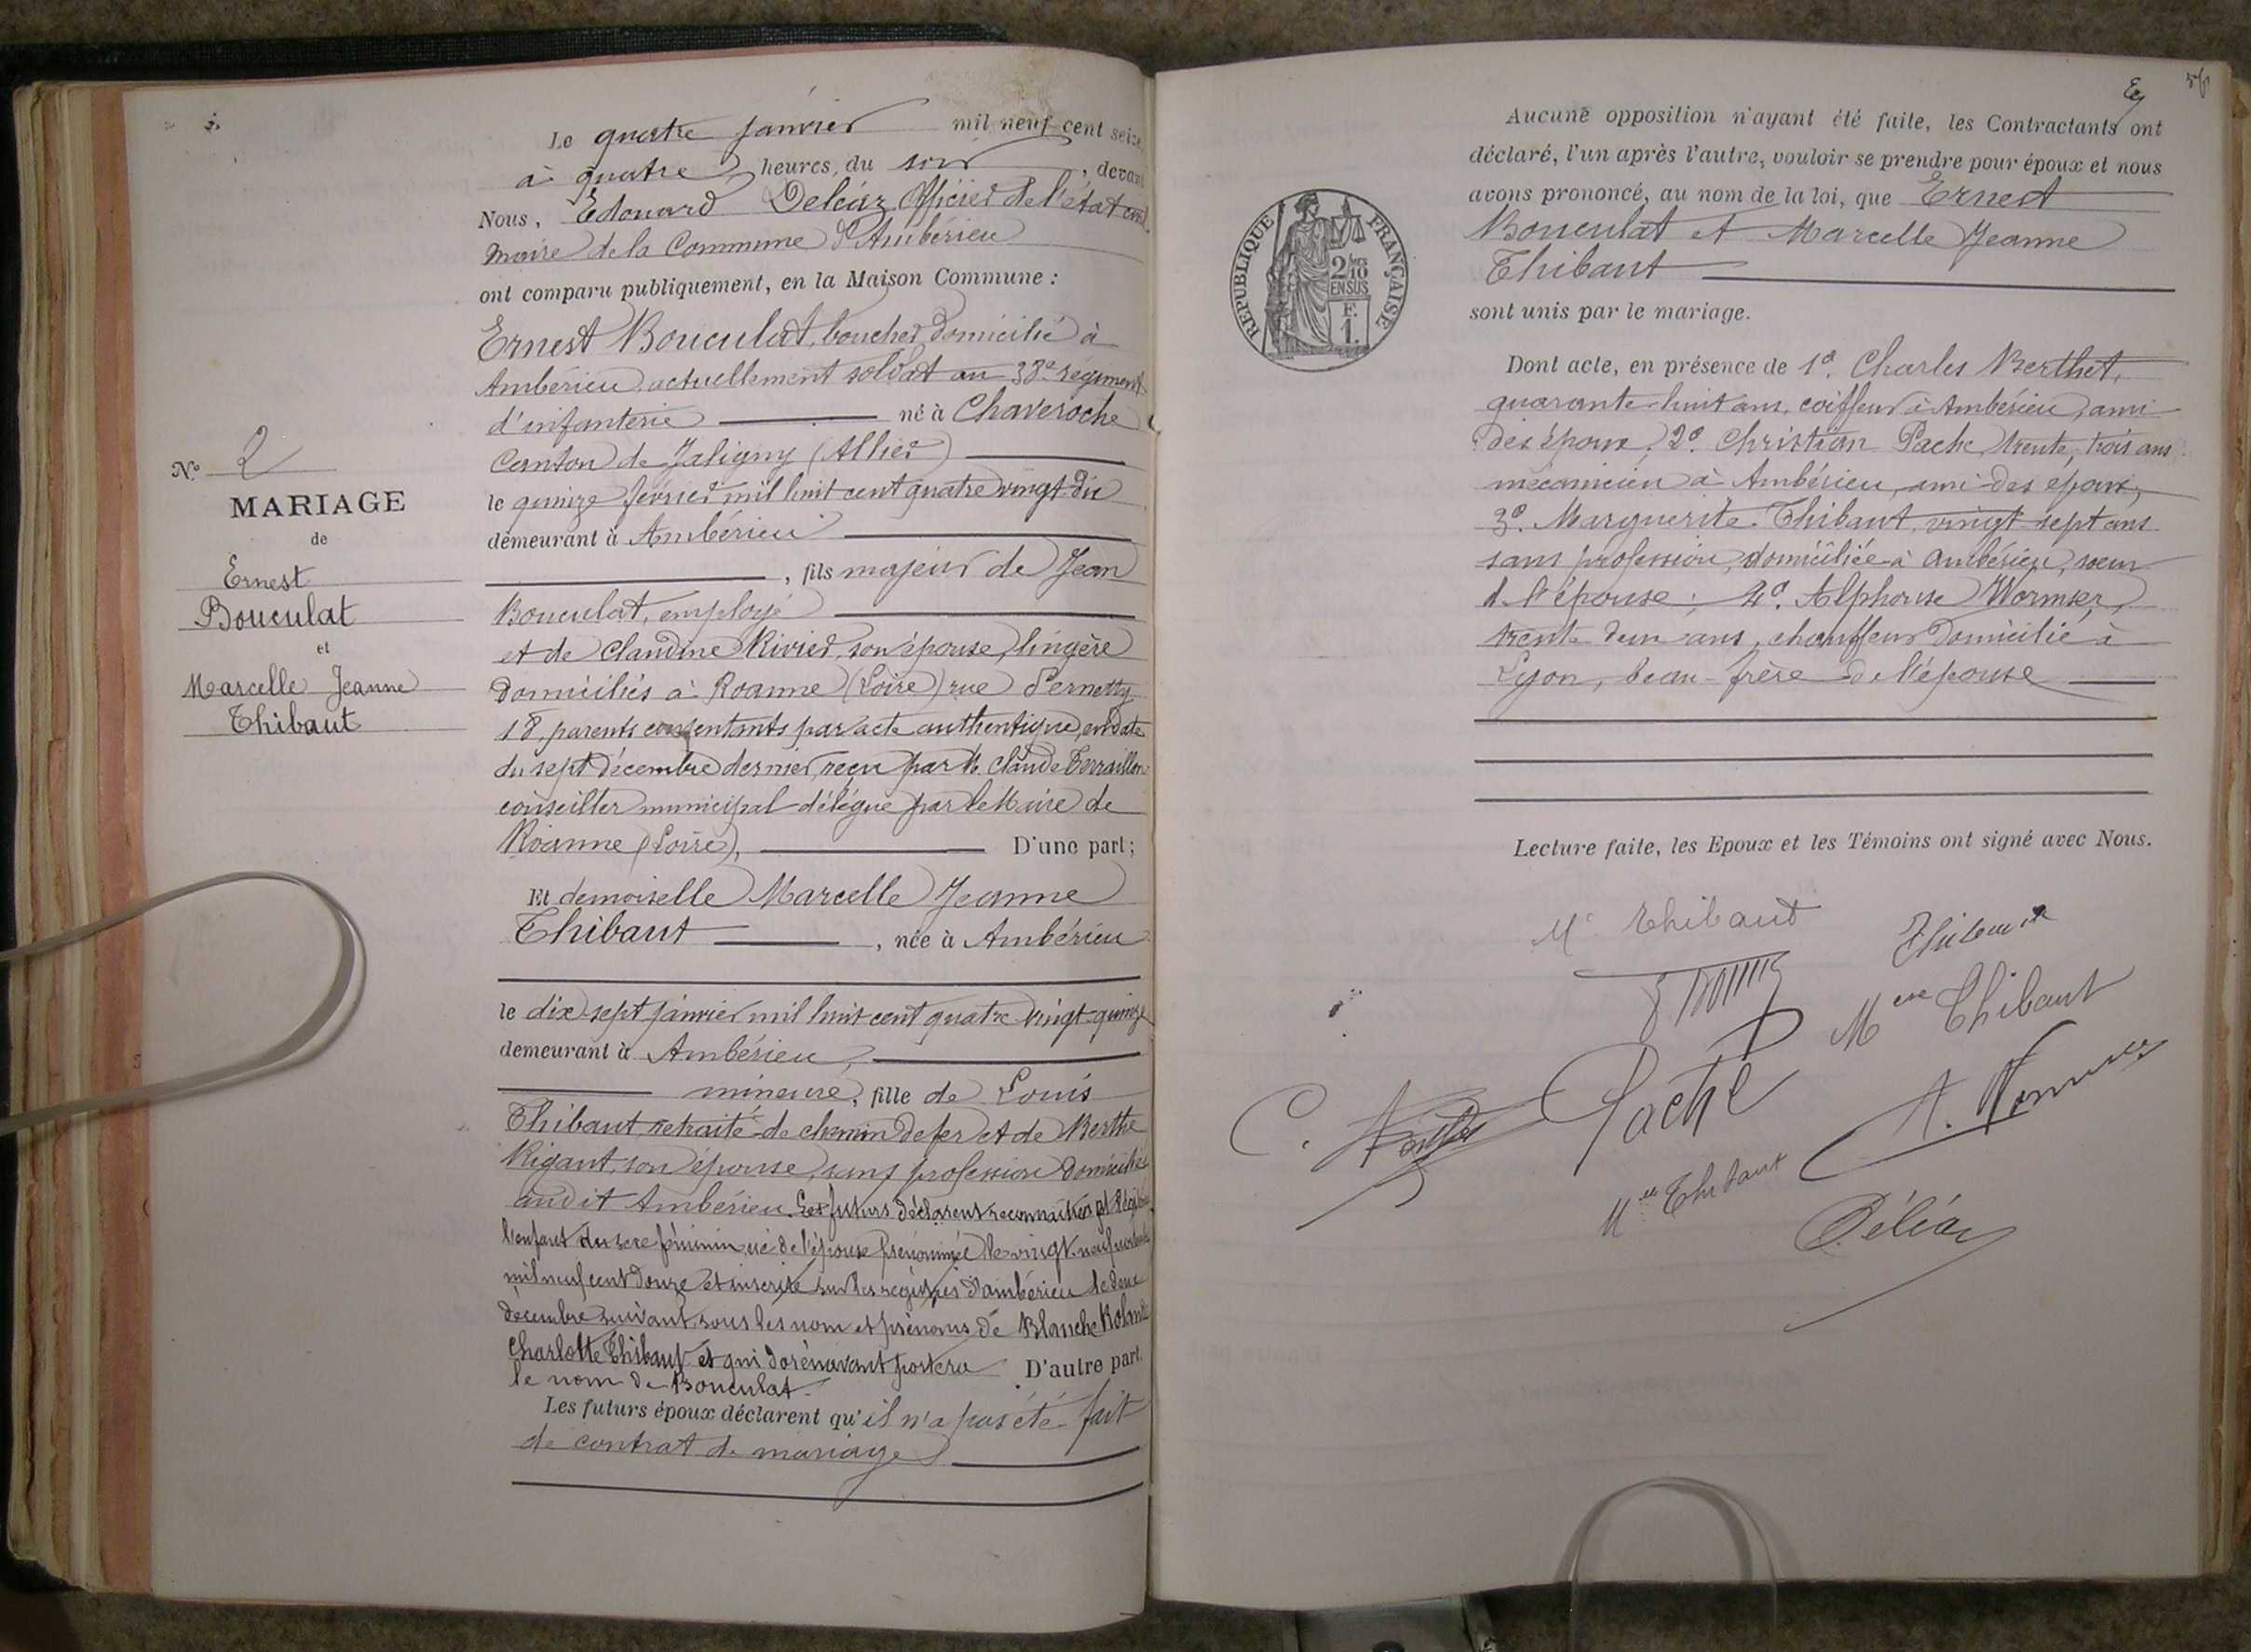 N° 2
MARIAGE
de
Ernest
Bouculat
et
Marcelle Jeanne
Thibaut
Le quatre janvier mil neuf cent seize
à quatre heures, du soir, devant
Nous, Edouard Deléaz Officier de l'état civil
maire de la Commune d'Ambérieu
ont comparu publiquement, en la Maison Commune :
Ernest Bouculat, boucher domicilié à
Ambérieu, actuellement soldat au 38e régiment
d'infanterie né à Chaveroche
Canton de Jaligny (Allier)
le quinze février mil huit cent quatre vingt dix
demeurant à Ambérieu
, fils majeur de Jean
Bouculat, employé
et de Claudine Rivier, son épouse, lingère
domiciliés à Roanne (Loire) rue Pernetty
18, parents consentants par acte authentique, en date
du sept décembre dernier, reçu par M. Claude Terraillon
conseiller municipal délégué par le Maire de
Roanne (Loire), D'une part;
Et demoiselle Marcelle Jeanne
Thibaut, née à Ambérieu
le dix sept janvier mil huit cent quatre vingt-quinze
demeurant à Ambérieu,
mineure, fille de Louis
Thibaut, retraité de chemin de fer et de Berthe
Rigaut, son épouse, sans profession domiciliés
audit Ambérieu. Les futurs déclarent reconnaître pt
l'enfant du sexe féminin, né de l'épouse prénommée le vingt-neuf novembre
mil neuf cent douze et inscrite sur les registres d'ambérieu le deux
décembre suivant, sous les nom et prénoms de Blanche Rolande
Charlotte Thibaut et qui dorénavant portera D'autre part.
le nom de Bouculat.
Les futurs époux déclarent qu'il n'a pas été fait
de contrat de mariage
Aucune opposition n'ayant été faite, les Contractants ont
déclaré, l'un après l'autre, vouloir se prendre pour époux et nous
avons prononcé, au nom de la loi, que Ernest
Bouculat et Marcelle Jeanne
Thibaut
sont unis par le mariage.
REPUBLIQUE FRANÇAISE
2/10
EN SUS
F.
1.
Dont acte, en présence de 1°. Charles Berthet,
quarante-huit ans, coiffeur à Ambérieu, ami
des époux; 2°. Christian Pache, trente, trois ans
mécanicien à Ambérieu, ami des époux;
3°. Marguerite Thibaut, vingt sept ans
sans profession, domiciliée à Ambérieu, sœur
de l'épouse; 4°. Alphonse Wormser,
trente deux ans, chauffeur domicilié à
Lyon, beau-frère de l'épouse
Lecture faite, les Epoux et les Témoins ont signé avec Nous.
Me Thibaut
Thibaut
Mme Thibaut
Pache
A. Wormser
Mlle Thibaut
Deléaz